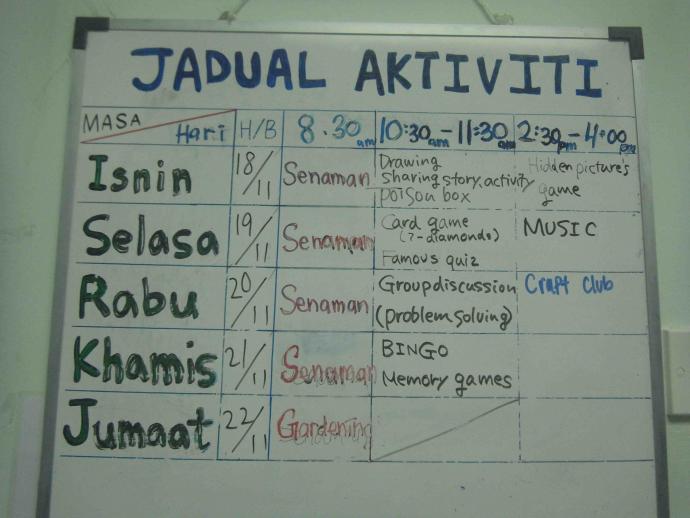 JADUAL AKTIVITI
MASA Hari H/B 8.30am 10:30am-11:30am 2:30pm-4:00pm
Isnin 18/11 Senaman Drawing Hidden picture's
sharing story.activity game
poison box
Selasa 19/11 Senaman Card game MUSIC
(7-diamonds)
Famous quiz
Rabu 20/11 Senaman Group discussion Craft Club
(problem solving)
Khamis 21/11 Senaman BINGO
Memory games
Jumaat 22/11 Gardening